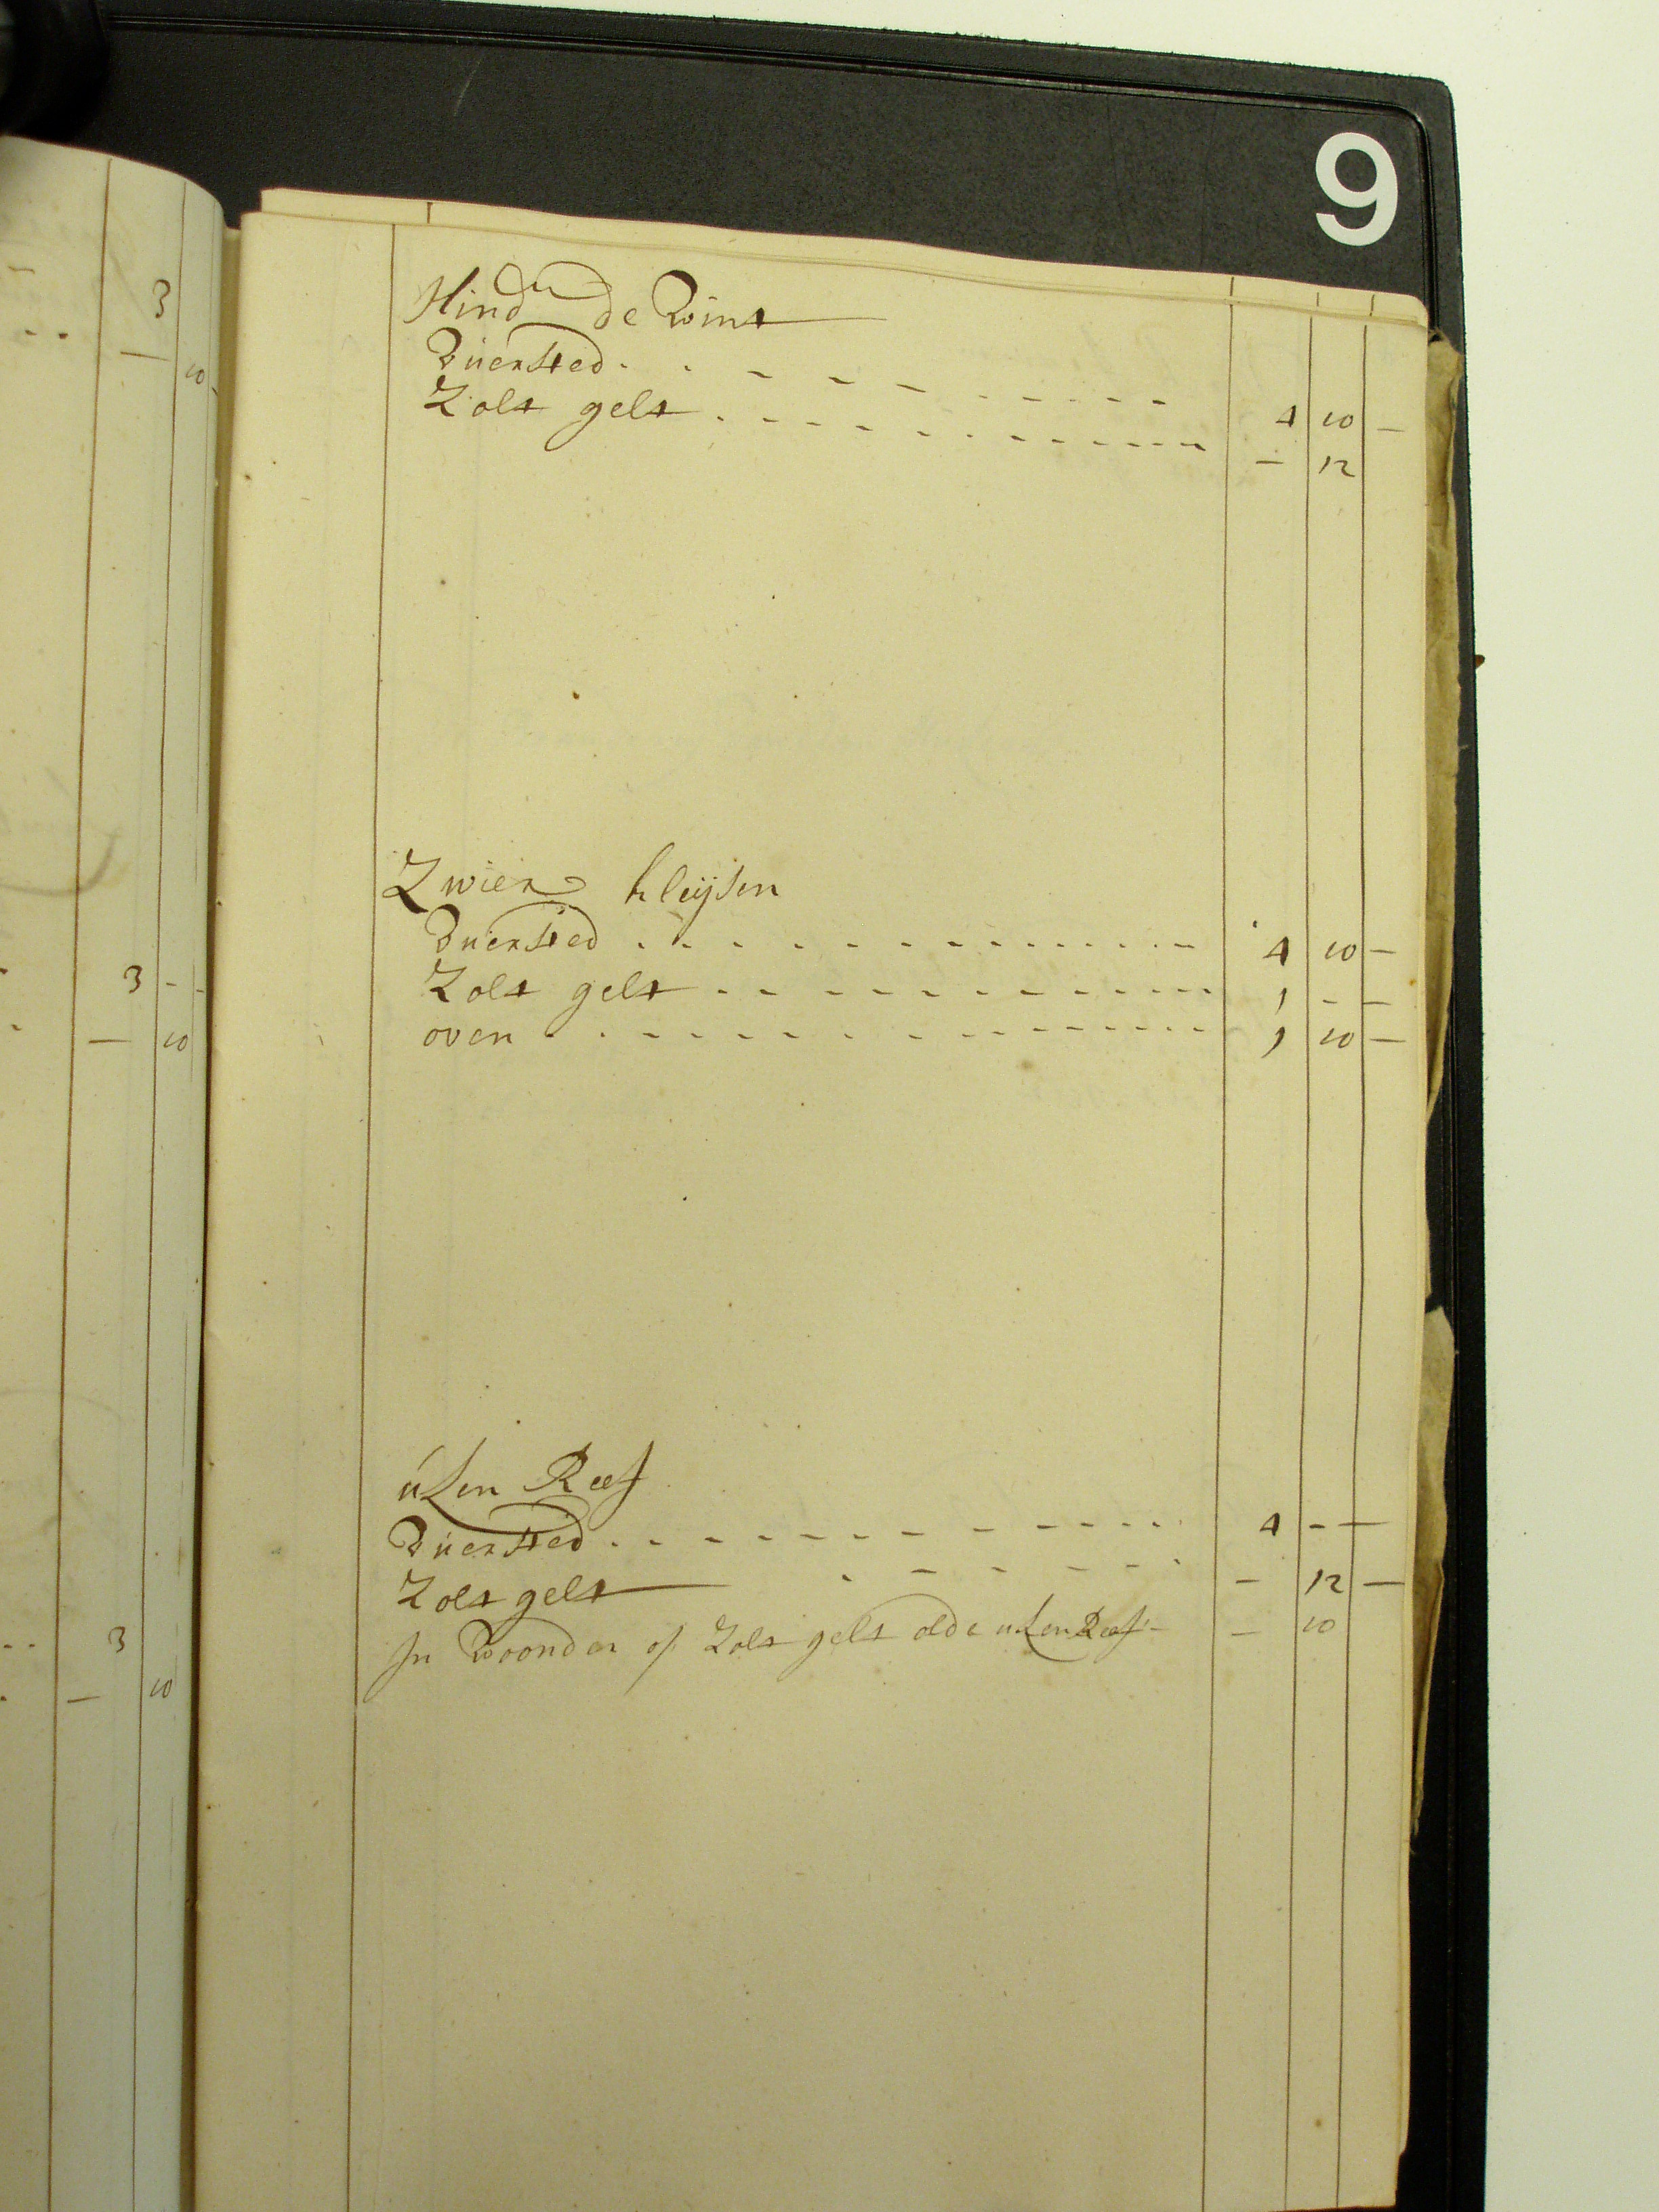 9
3
—
10
Hind de Wint
Vuersted . . - - - - - - - 4 10 —
Zolt gelt . - - - - - - - - — 12
Zwier kleijsen
Vuersted . . - - - - - - - 4 10 —
Zolt gelt - - - - - - - - - 1 - —
oven . . - - - - - - - - - 1 10 —
3 - -
— 10
uken Reef
Vuersted . . - - - - - - - 4 - —
Zolt gelt — . - - - - - — 12 —
In Woonder of Zolt gelt olde uken Reef - — 10
3
— 10